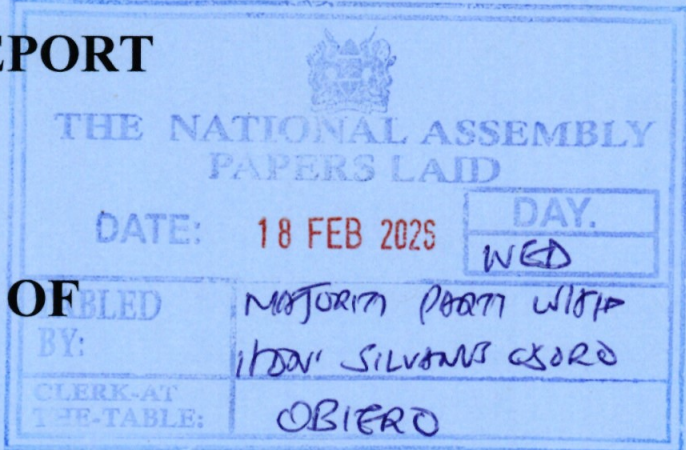 EPORT
THE NATIONAL ASSEMBLY
PAPERS LAID
DATE: 18 FEB 2026 DAY.
WED
OF
TABLED BY: MAJORITY PARTY WHIP
HON. SILVANUS OSORO
CLERK-AT
THE-TABLE: OBIERO